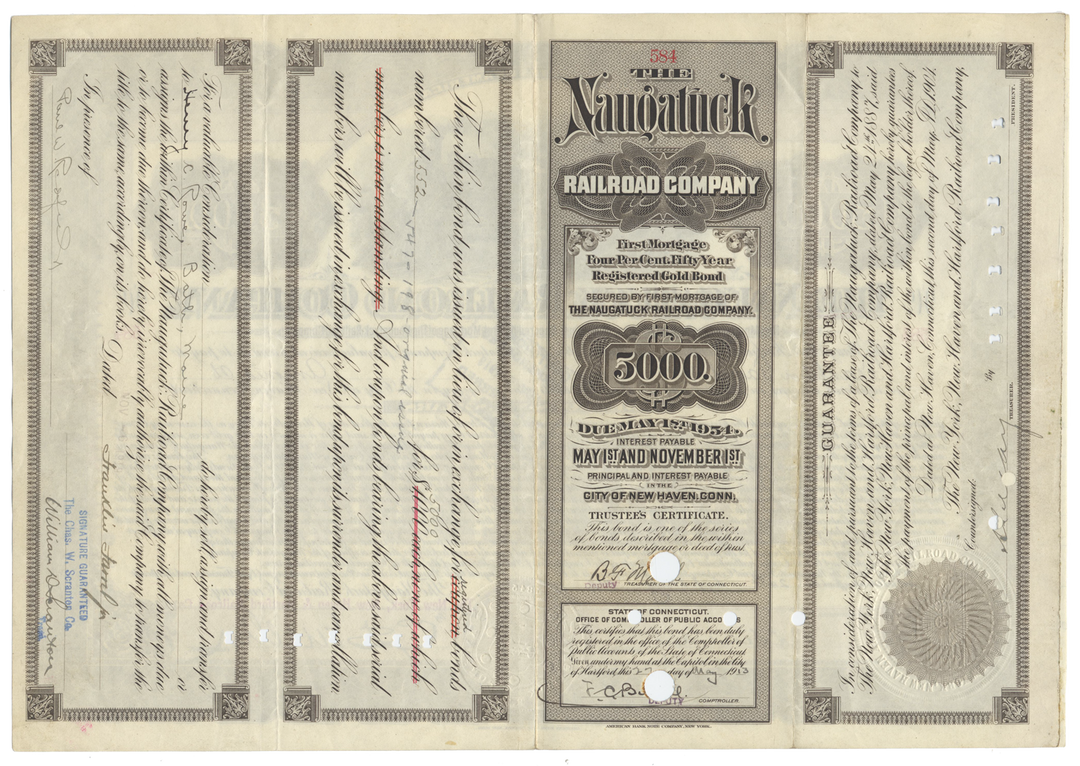 For a valuable Consideration,
do hereby sell, assign and transfer
to Henry C Rowe, Bath, Maine or
assigns the within Certificate of The Naugatuck Railroad Company with all moneys due
or to become due thereon and do hereby irrevocably authorize the said Company to transfer the
title to the same, accordingly, on its books.
Dated
In presence of
SIGNATURE GUARANTEED
The Chas. W. Scranton Co.
The within bond was issued in lieu of or in exchange for registered bonds
numbered 552 - 547-48 original issue for $5000
Six coupon bonds having the same serial
numbers will be issued in exchange for this bond upon its surrender and cancellation
584
THE
Naugatuck
RAILROAD COMPANY
First Mortgage
Four Per Cent. Fifty Year
Registered Gold Bond
SECURED BY FIRST MORTGAGE OF
THE NAUGATUCK RAILROAD COMPANY.
$5000.
DUE MAY 1ST, 1954.
INTEREST PAYABLE
MAY 1ST AND NOVEMBER 1ST
PRINCIPAL AND INTEREST PAYABLE
IN THE
CITY OF NEW HAVEN, CONN.
TRUSTEE'S CERTIFICATE.
This bond is one of the series
of bonds described in the within
mentioned mortgage or deed of trust.
Deputy TREASURER OF THE STATE OF CONNECTICUT.
STATE OF CONNECTICUT.
OFFICE OF COMPTROLLER OF PUBLIC ACCOUNTS
This certifies that this bond has been duly
registered in the office of the Comptroller of
public Accounts of the State of Connecticut
Given under my hand at the Capitol in the City
of Hartford, this 27 day of May 1913
DEPUTY COMPTROLLER.
AMERICAN BANK NOTE COMPANY, NEW YORK.
GUARANTEE
In consideration of, and pursuant to the terms of a lease of The Naugatuck Railroad Company to
The New York, New Haven and Hartford Railroad Company, dated May 24th 1887, said
The New York, New Haven and Hartford Railroad Company hereby guarantees
the payment of the principal and interest of the within bond to the legal holder thereof.
Dated at New Haven, Connecticut, this second day of May, A.D. 1905.
The New York, New Haven, and Hartford Railroad Company,
by
PRESIDENT.
Countersigned:
TREASURER.